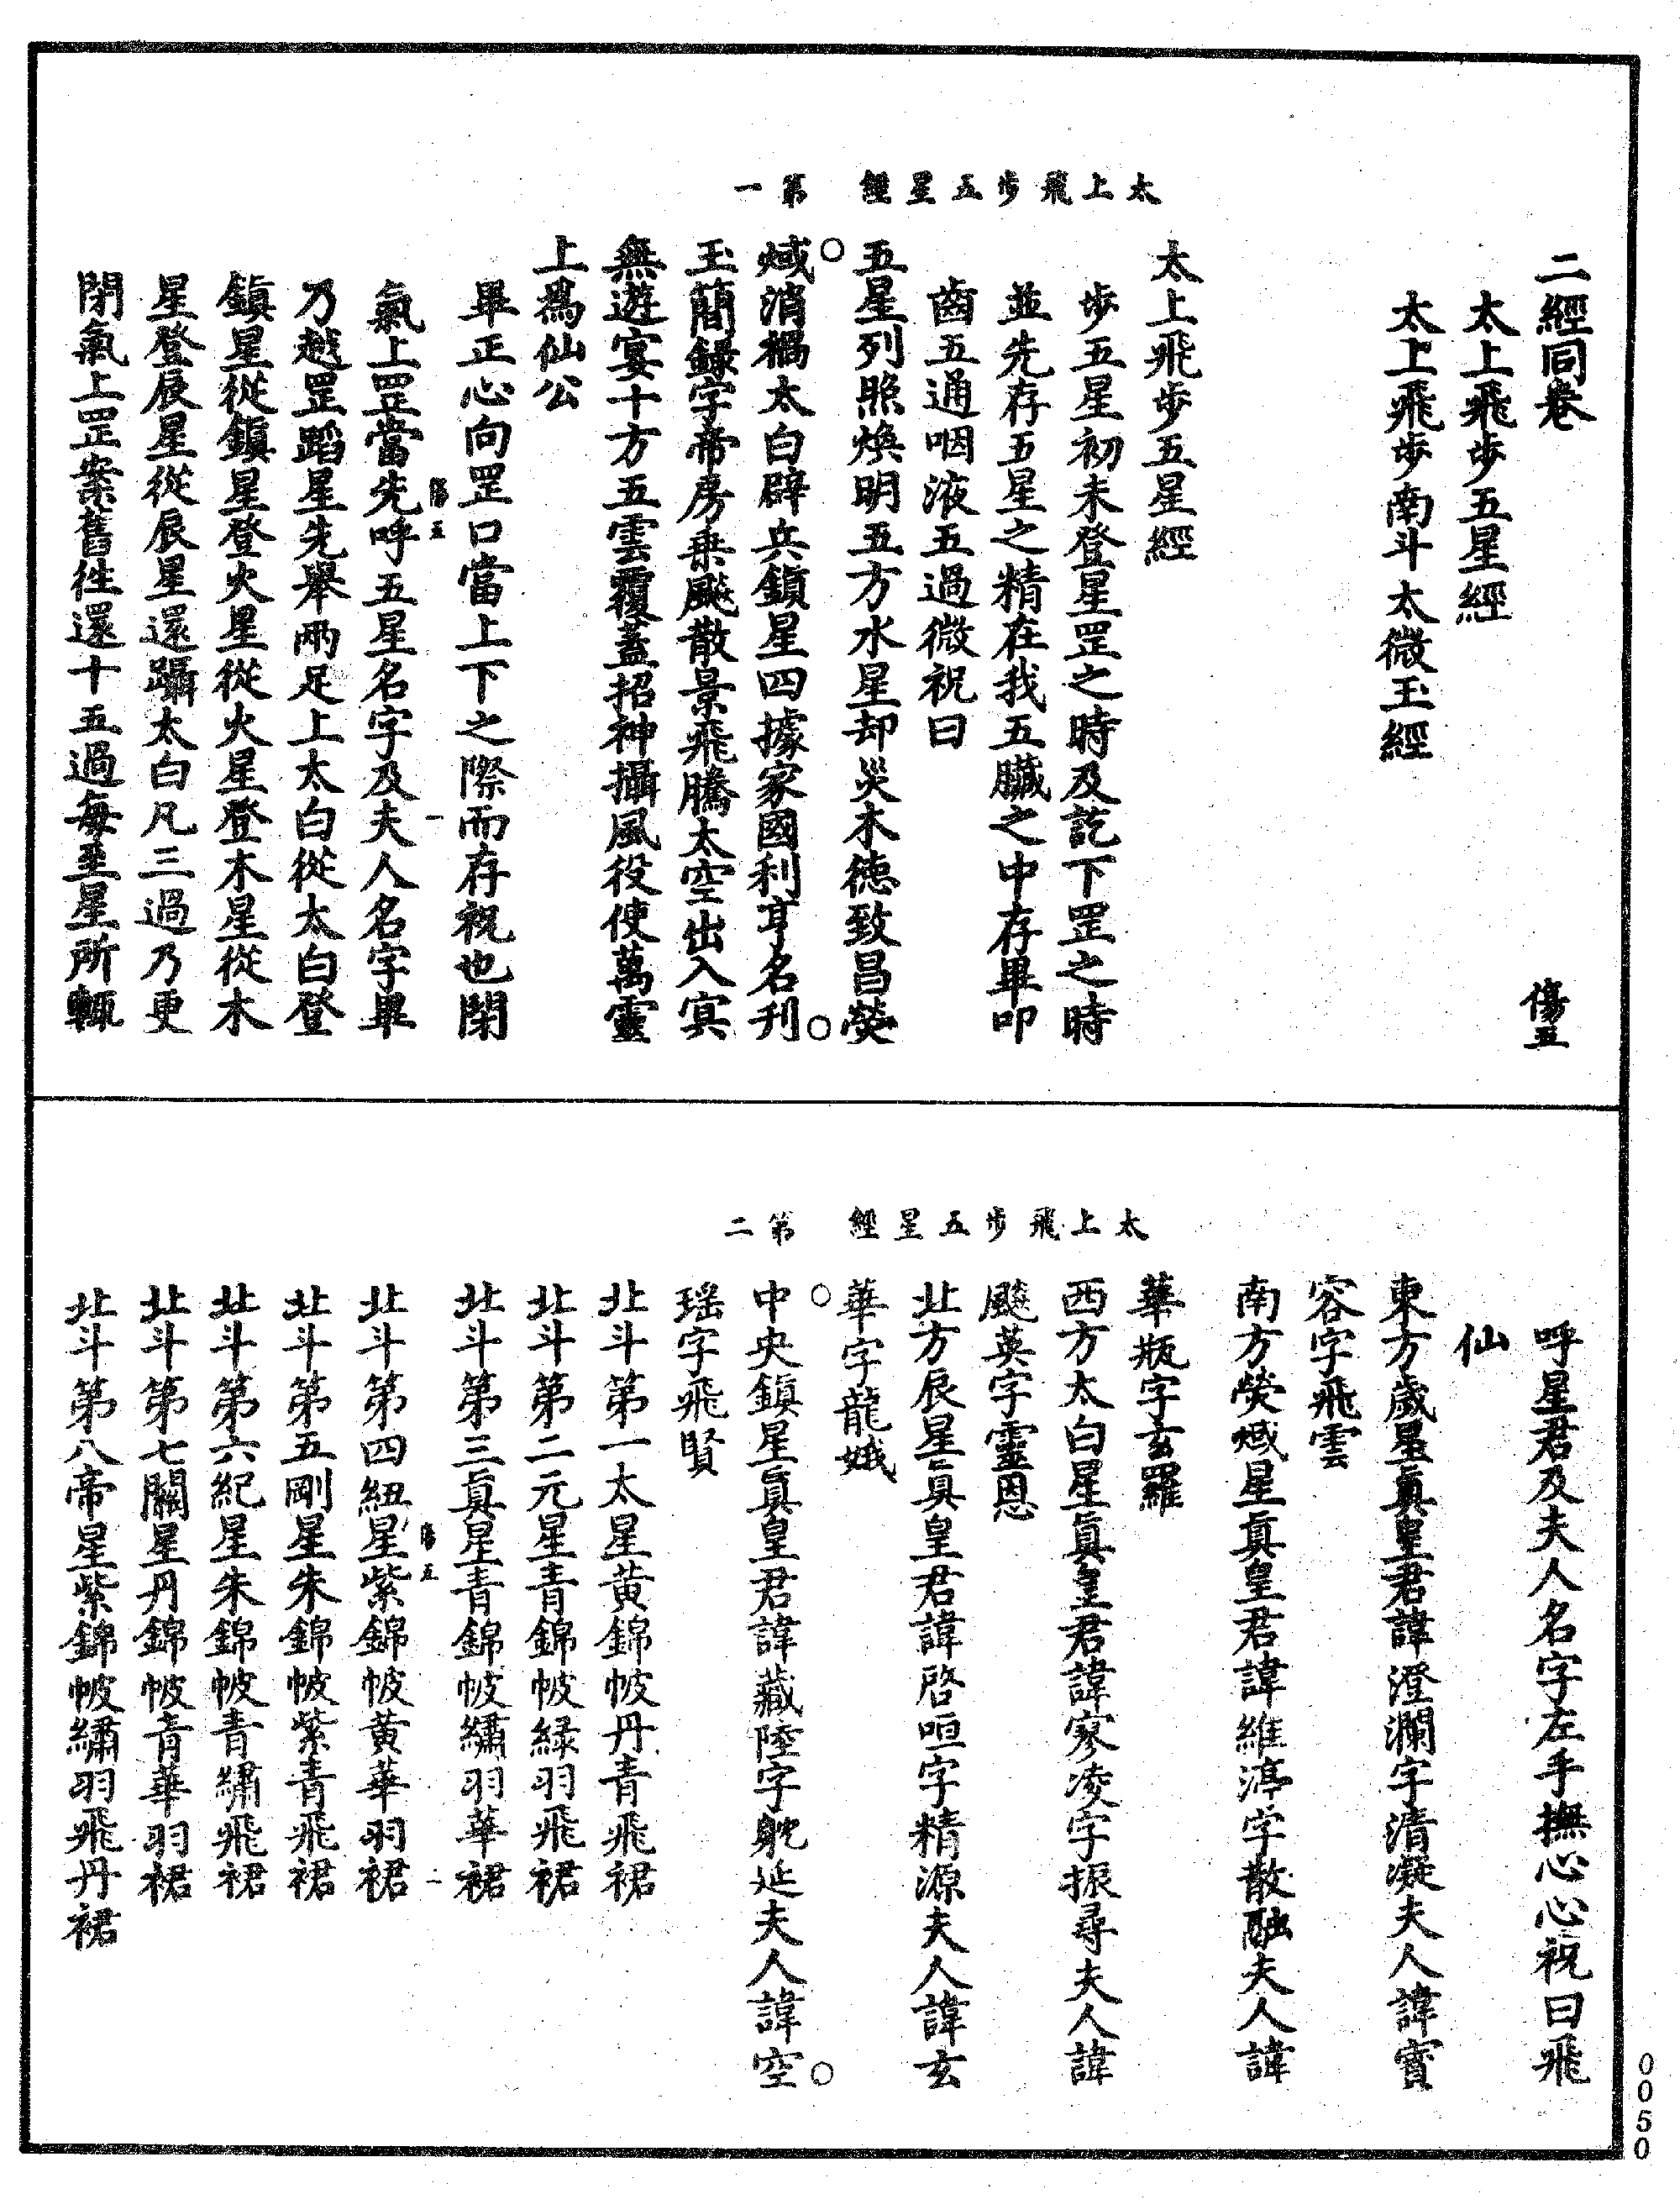 二經同卷　傷五
太上飛步五星經
太上飛步南斗太微玉經
太上飛步五星經　第一
太上飛步五星經
步五星初未登星罡之時及訖下罡之時
並先存五星之精在我五臟之中存畢叩
齒五通咽液五過微祝曰
五星列照煥明五方水星却災木德致昌熒
惑消禍太白辟兵鎮星四據家國利亨名刋
玉簡錄字帝房乗飈散景飛騰太空出入冥
無遊宴十方五雲覆蓋招神攝風役使萬靈
上爲仙公
畢正心向罡口當上下之際而存祝也閉
傷五　一
氣上罡當先呼五星名字及夫人名字畢
乃越罡蹈星先舉兩足上太白從太白登
鎮星從鎮星登火星從火星登木星從木
星登辰星從辰星還躡太白凡三過乃更
閉氣上罡案舊徃還十五過每至星所輒
太上飛步五星經　第二
呼星君及夫人名字左手撫心心祝曰飛
仙
東方歲星眞皇君諱澄瀾字清凝夫人諱寶
容字飛雲
南方熒惑星眞皇君諱維渟字散融夫人諱
華瓶字玄羅
西方太白星眞皇君諱寥凌字振尋夫人諱
飈英字靈恩
北方辰星眞皇君諱啓咺字精源夫人諱玄
華字龍娥
中央鎮星眞皇君諱藏陸字躭延夫人諱空
瑶字飛賢
北斗第一太星黄錦帔丹青飛裙
北斗第二元星青錦帔緑羽飛裙
北斗第三眞星青錦帔繡羽華裙
傷五　一
北斗第四紐星紫錦帔黄華羽裙
北斗第五剛星朱錦帔紫青飛裙
北斗第六紀星朱錦帔青繡飛裙
北斗第七關星丹錦帔青華羽裙
北斗第八帝星紫錦帔繡羽飛丹裙
0050